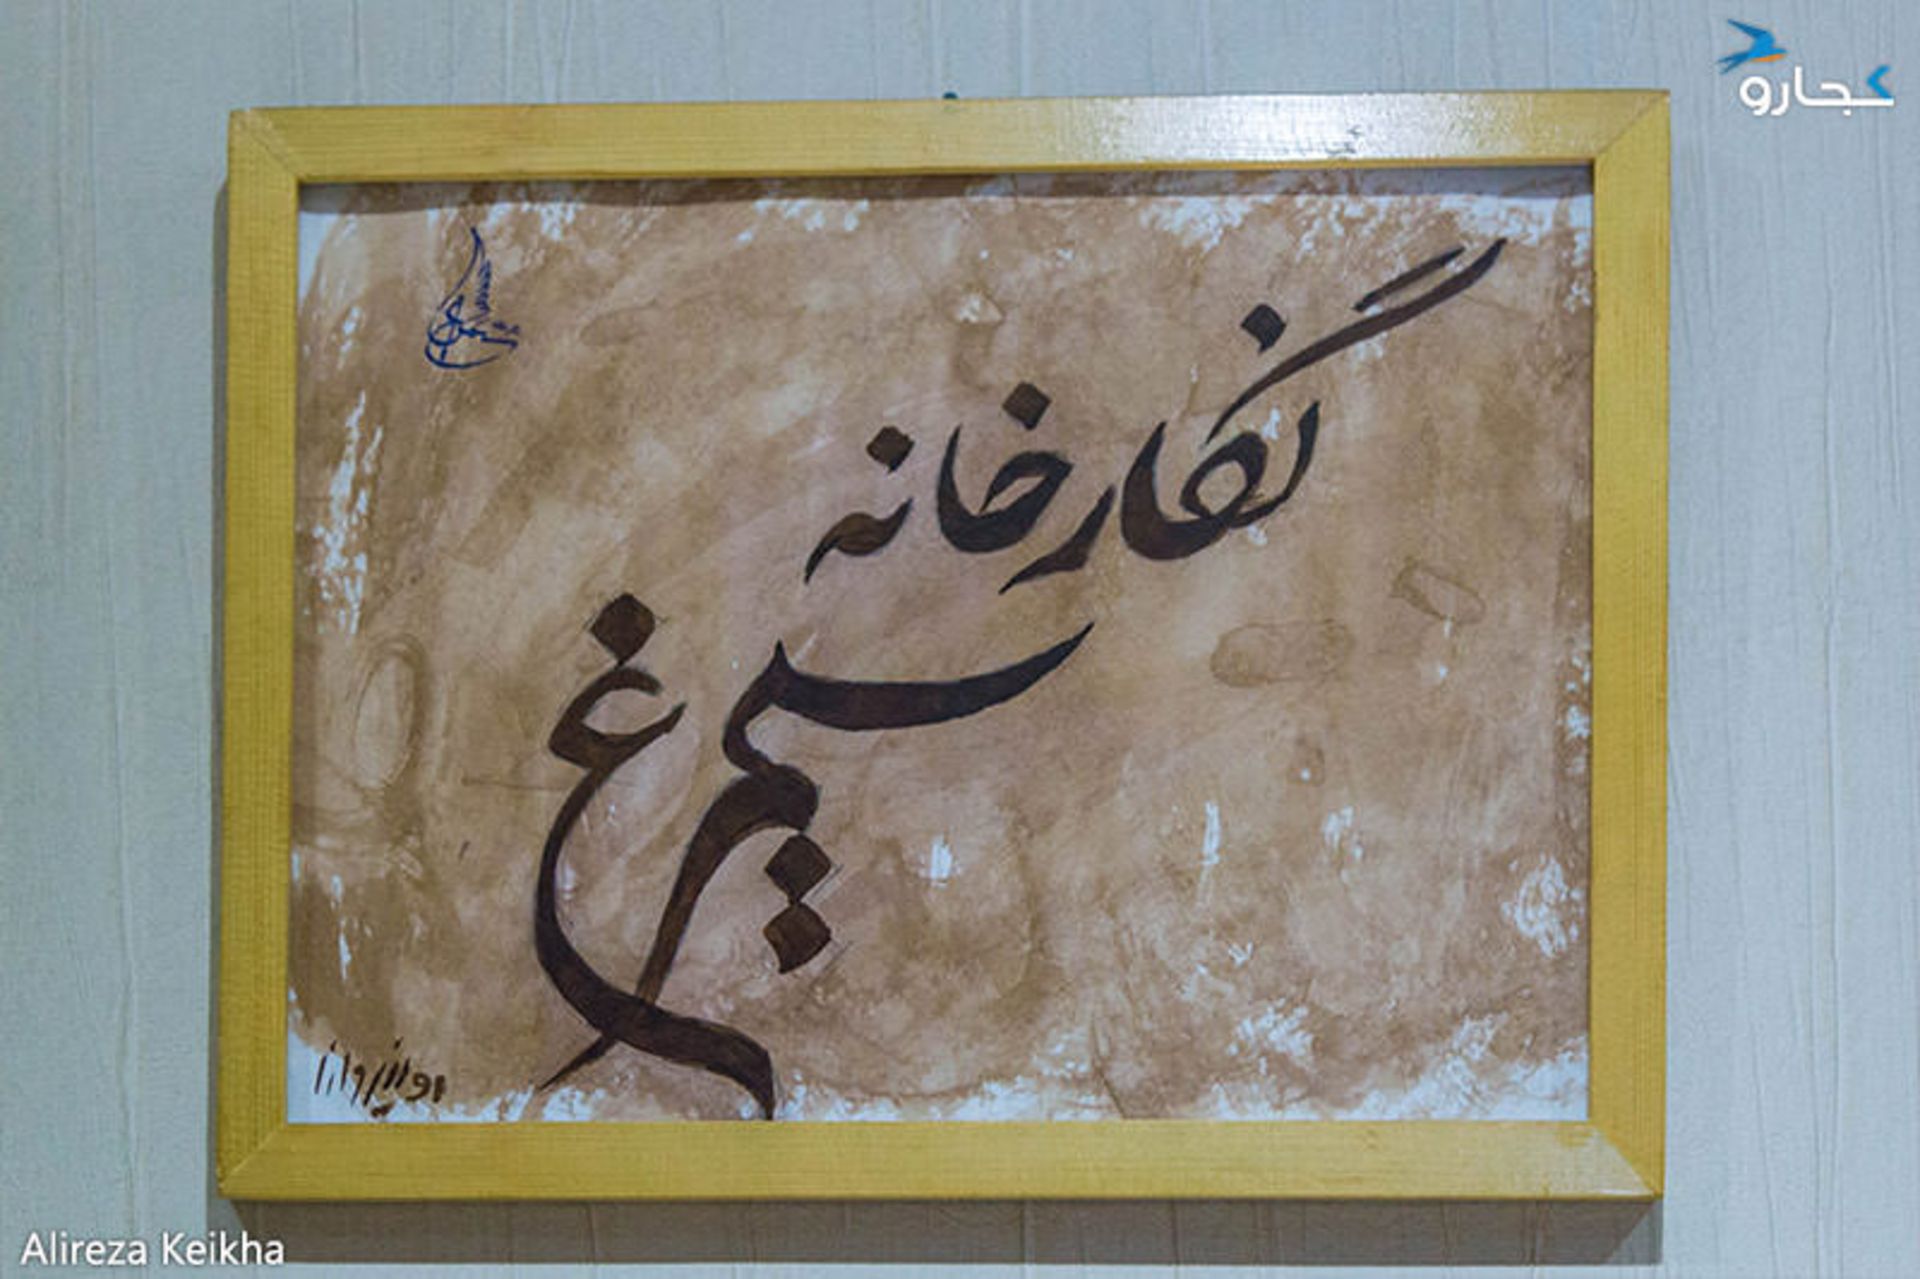 کجارو
نگارخانه
سیمرغ
Alireza Keikha